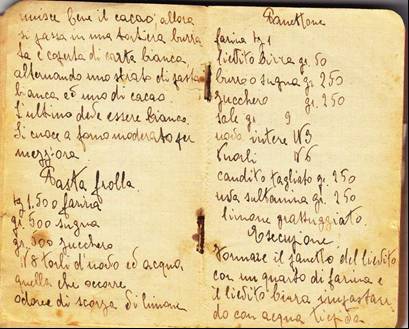 unisce bene il cacao; allora
si passa in una tortiera burra
ta e coperta di carta bianca,
alternando uno strato di pasta
bianca ed uno di cacao.
L'ultimo deve essere bianco.
Si cuoce a forno moderato per
mezz'ora.
Pasta frolla.
kg 1.500 farina
gr. 500 sugna
gr. 500 zucchero
N 8 torli d'uovo ed acqua
quella che occorre
odore di scorza di limone
Panettone
farina kg 1
lievito birra gr. 50
burro o sugna gr. 250
zucchero gr. 250
sale gr. 9
uova intere N 3
tuorli N 6
candito tagliato gr. 250
uva sultanina gr. 250
limone grattuggiato.
Esecuzione
Formare il panetto del lievito
con un quarto di farina e
il lievito birra impastan
do con acqua tiepida